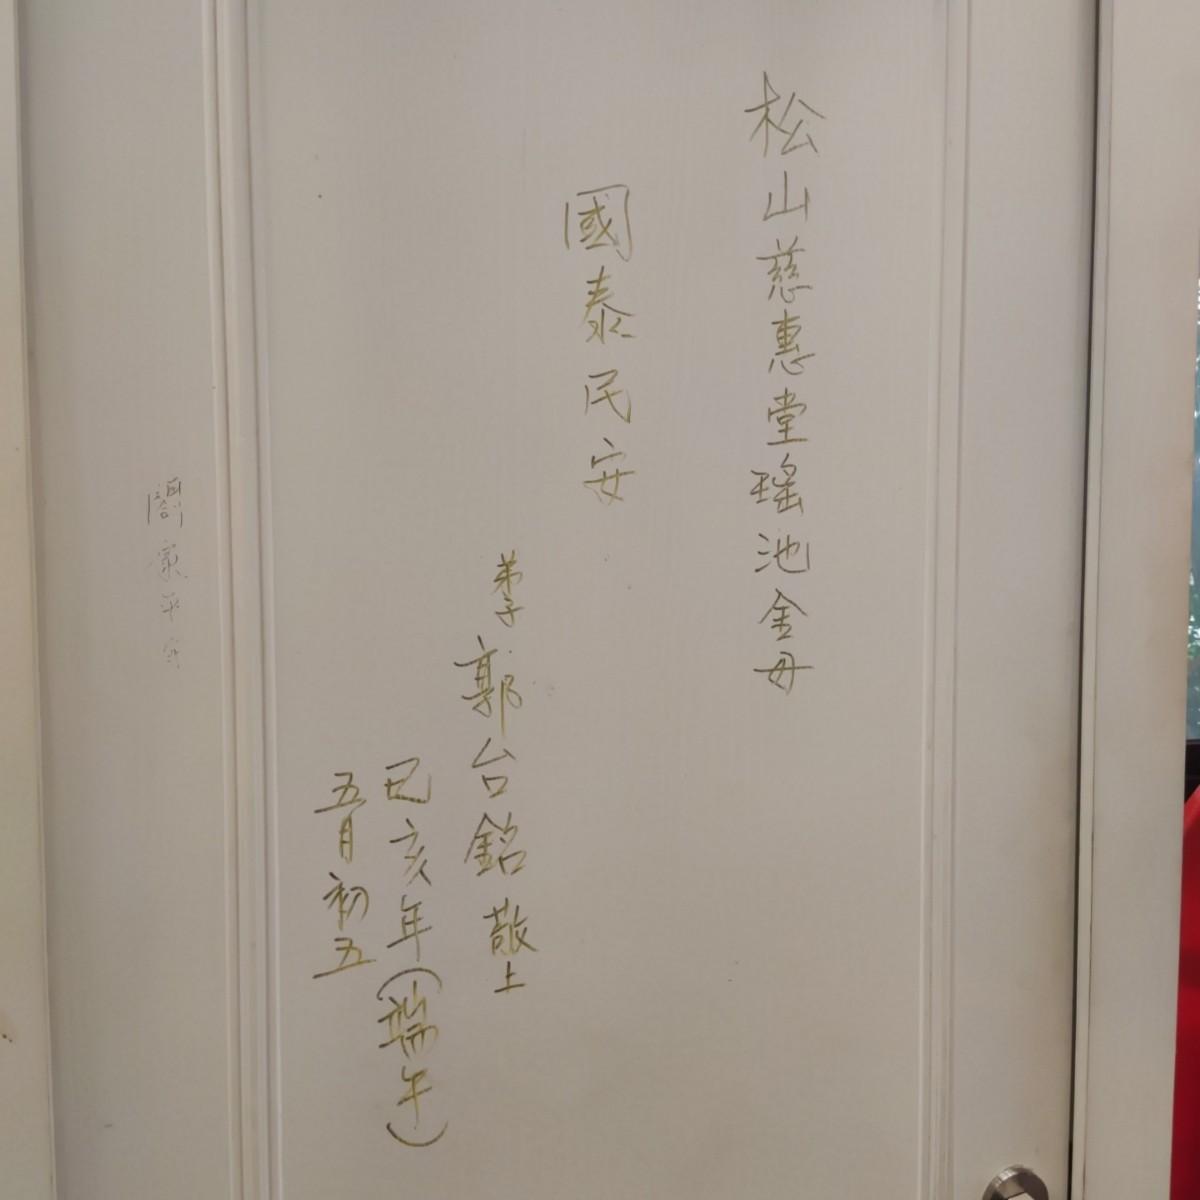 松山慈惠堂瑤池金母
國泰民安
弟子郭台銘敬上
己亥年(端午)
五月初五